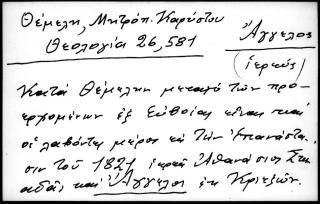 Θέμελη, Μητροπ. Καρύστου
Θεολογία 26, 581
Ἄγγελος
(ἱερεύς)
Κατά Θέμελην μεταξύ τῶν προ-
ερχομένων ἐξ Εὐβοίας εἶναι καί
οἱ λαβόντες μέρος εἰς τήν Ἐπανάστα-
σιν τοῦ 1821 ἱερεῖς Ἀθανάσιος
καί Ἄγγελος ἐκ Κριεζῶν.